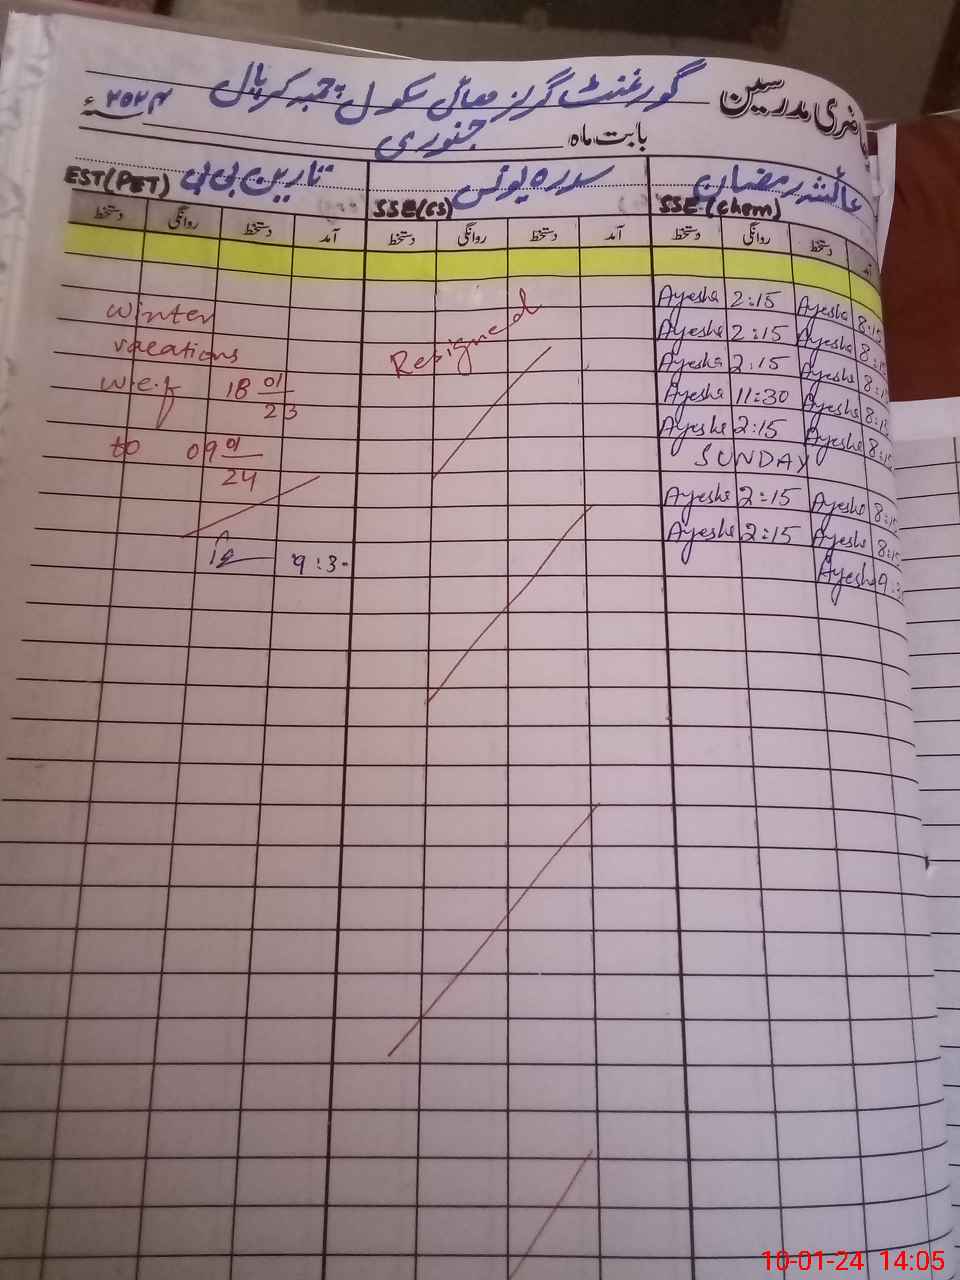 حاضری مدرسین گورنمنٹ گرلز ہائی سکول
بابت ماہ جنوری ۲۰۲۴ء
عائشہ رمضان
SSE (Chem)
سدرہ یونس
SSE (CS)
نارین بی بی
EST (PET)
آمد دستخط روانگی دستخط
آمد دستخط روانگی دستخط
آمد دستخط روانگی دستخط
Ayesha 2:15 Ayesha 8:15
Ayesha 2:15 Ayesha 8:15
Ayesha 2:15 Ayesha 8:15
Ayesha 11:30 Ayesha 8:15
Ayesha 2:15 Ayesha 8:15
SUNDAY
Ayesha 2:15 Ayesha 8:15
Ayesha 2:15 Ayesha 8:15
Ayesha 9:3
Resigned
Winter
vacations
w.e.f 18 01/23
to 09 01/24
9:3-
10-01-24 14:05